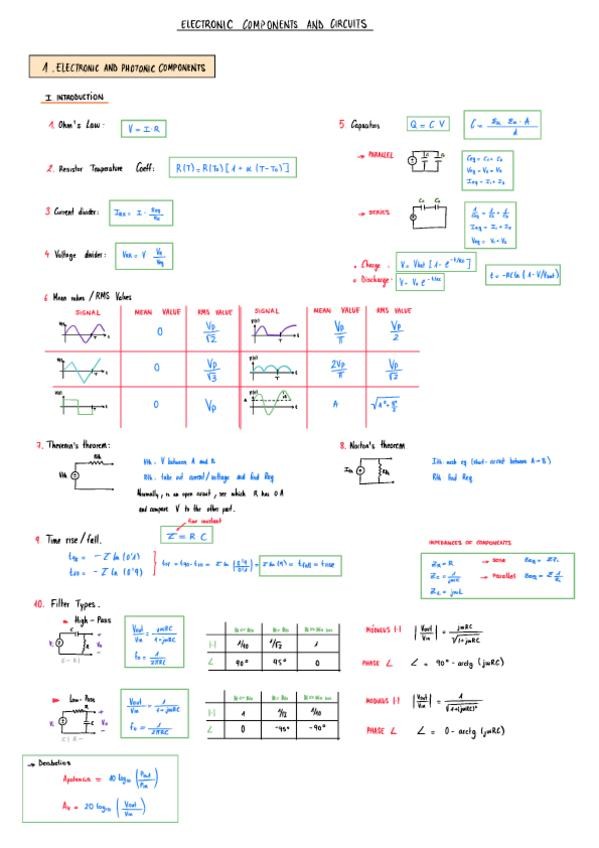 ELECTRONIC COMPONENTS AND CIRCUITS
1. ELECTRONIC AND PHOTONIC COMPONENTS
I INTRODUCTION
1. Ohm's Law: V = I · R
2. Resistor Temperature Coeff: R(T) = R(T₀) [1 + α (T - T₀)]
3 Current divider:
4 Voltage divider:
5. Capacitors Q = C V
→ PARALLEL
→ SERIES
Charge : V = Vbat [1 - e^-t/RC] t = -RC ln (1 - V/Vbat)
Discharge: V = V₀ e^-t/RC
6 Mean values / RMS Values
SIGNAL MEAN VALUE RMS VALUE SIGNAL MEAN VALUE RMS VALUE
0 Vp/√2 Vp/π Vp/2
0 Vp/√3 2Vp/π Vp/√2
0 Vp A
7. Thevenin's theorem:
Rth
Vth
Vth. V between A and B
Rth. take out current/voltage and find Req
Normally, is an open circuit, see which R has 0 A
and compare V to the other part.
8. Norton's theorem
Ith. mesh eq (short-circuit between A→B)
Rth find Req
9 Time rise/fall.
time constant
τ = R C
= -τ ln (0'1)
= -τ ln (0'9)
= τ ln (9) = tfall = trise
IMPEDANCES OF COMPONENTS
ZR = R → Serie
ZC = 1/jωC → Parallel
ZL = jωL
10. Filter Types.
► High-Pass
Vout/Vin = jωRC/1+jωRC
f₀ = 1/2πRC
|·| 1/10 1/√2 1
∠ 90° 45° 0
MODULUS |·| |Vout/Vin| = jωRC/√1+jωRC
PHASE ∠ ∠ = 90° - arctg (jωRC)
► Low-Pass
Vout/Vin = 1/1+jωRC
f₀ = 1/2πRC
|·| 1 1/√2 1/10
∠ 0 -45° -90°
MODULUS |·| |Vout/Vin| = 1/√1+(jωRC)²
PHASE ∠ ∠ = 0 - arctg (jωRC)
→ Decibelios
Apotencia = 10 log₁₀ (Pout/Pin)
Av = 20 log₁₀ (Vout/Vin)